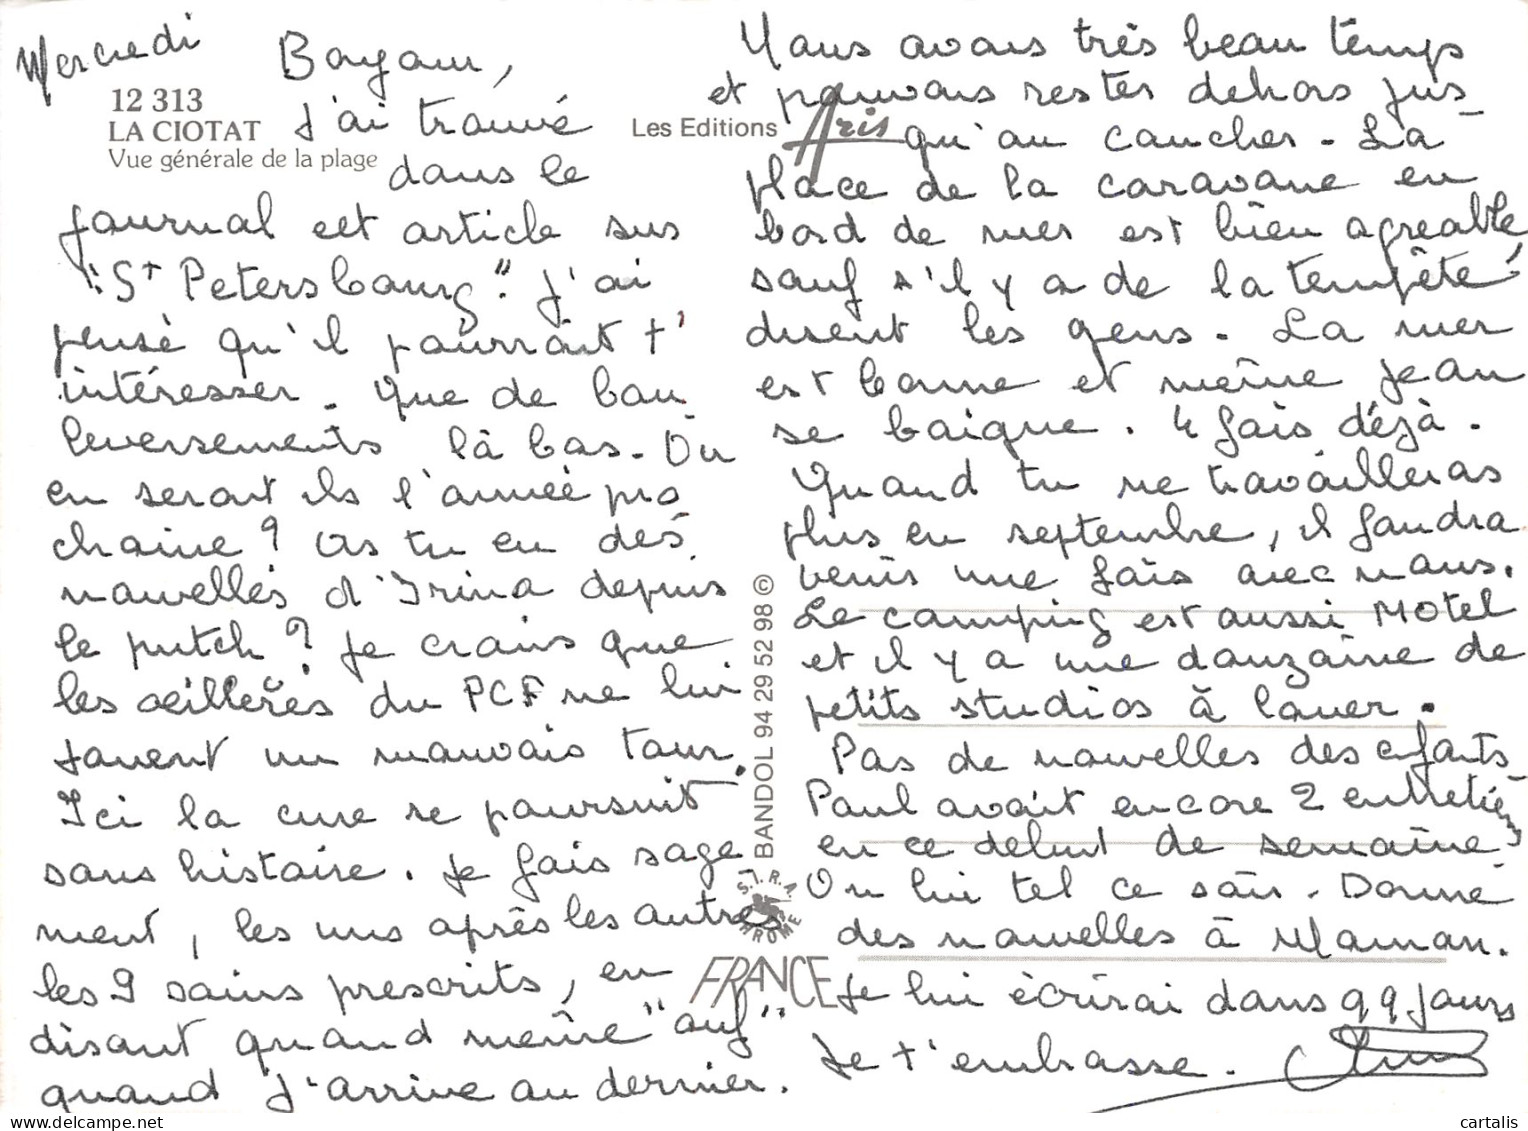 Mercredi
12 313
LA CIOTAT
Vue générale de la plage
j'ai trouvé
dans le
journal cet article sur
"St Petersbourg". J'ai
pensé qu'il pourrait t'
intéresser. Que de bou
leversements là bas. Où
en seront ils l'année pro
chaine ? As tu eu des
nouvelles d'Irina depuis
le putch ? Je crains que
les œillères du PCF ne lui
jouent un mauvais tour.
Ici la cure se poursuit
sans histoire. Je fais sage
ment, les uns après les autres
les 9 soins prescrits, en
disant quand même "ouf"
quand j'arrive au dernier.
Les Editions Aris
BANDOL 94 29 52 98 ©
S.I.R.A.
FRANCE
Nous avons très beau temps
et pouvons rester dehors jus_
qu'au coucher. La
place de la caravane en
bord de mer est bien agréable,
sauf s'il y a de la tempête
disent les gens. La mer
est bonne et même Jean
se baigne. 4 fois déjà.
Quand tu ne travailleras
plus en septembre, il faudra
venir une fois avec nous.
Le camping est aussi Motel
et il y a une douzaine de
petits studios à louer.
Pas de nouvelles des enfants
Paul avait encore 2 entretiens
en ce début de semaine.
On lui tel ce soir. Donne
des nouvelles à Maman.
Je lui écrirai dans qq jours
Je t'embrasse.